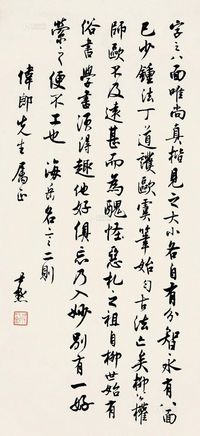 字之八面唯尚真楷見之大小各自有分智永有八面
已少鍾法丁道護歐虞筆始勻古法亡矣柳公權
師歐不及遠甚而為醜怪惡札之祖自柳世始有
俗書學書須得趣他好俱忘乃入妙別有一好
縈之便不工也 海岳名言二則
偉郎先生屬正
尹默